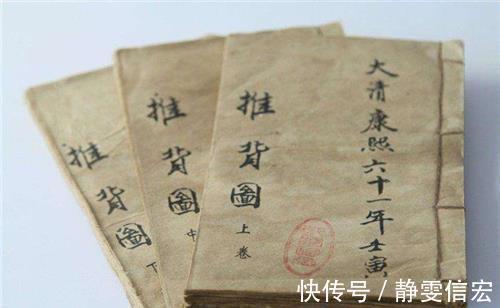 大清康熙六十一年壬寅
推背圖
上卷
推背圖
中
推背圖
下
快传号/静雯信宏